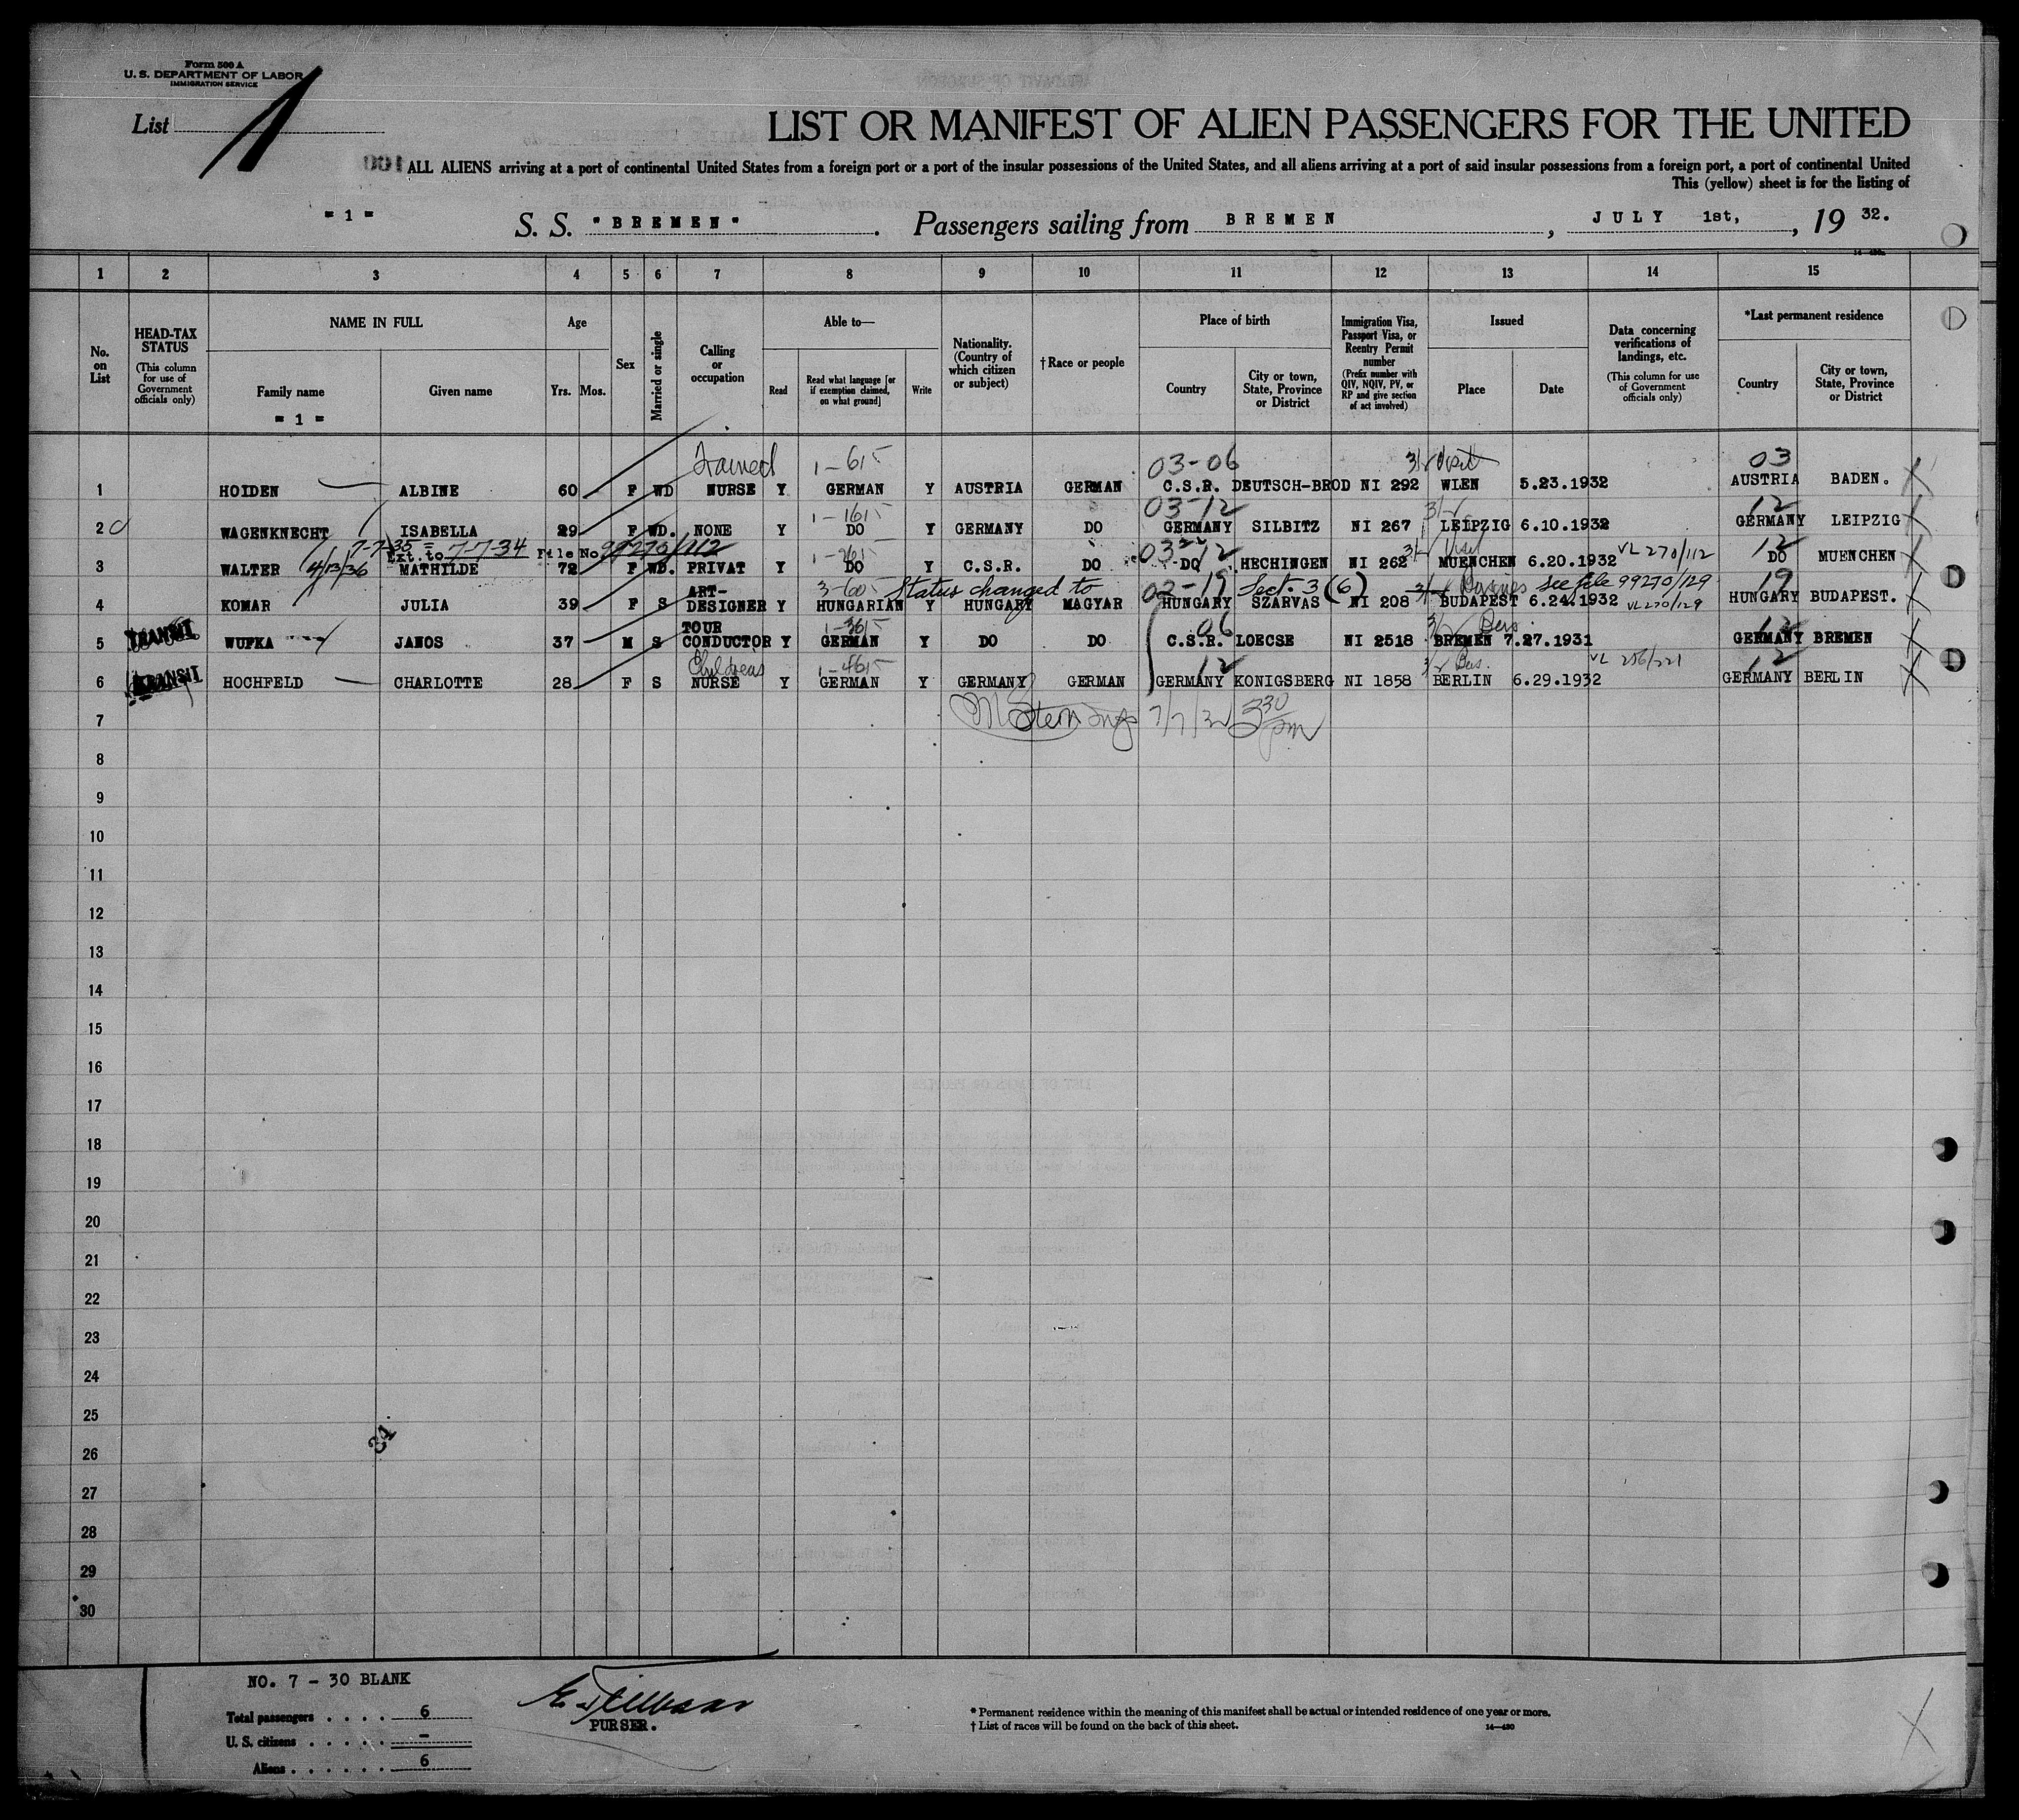 Form 500 A
U. S. DEPARTMENT OF LABOR
IMMIGRATION SERVICE
List 1
LIST OR MANIFEST OF ALIEN PASSENGERS FOR THE UNITED
ALL ALIENS arriving at a port of continental United States from a foreign port or a port of the insular possessions of the United States, and all aliens arriving at a port of said insular possessions from a foreign port, a port of continental United
This (yellow) sheet is for the listing of
= 1 = S. S. "BREMEN". Passengers sailing from BREMEN, JULY 1st, 19 32.
1 2 3 4 5 6 7 8 9 10 11 12 13 14 15
No. on List
HEAD-TAX STATUS (This column for use of Government officials only)
NAME IN FULL
Family name
= 1 =
Given name
Age
Yrs. Mos.
Sex
Married or single
Calling or occupation
Able to—
Read
Read what language [or if exemption claimed, on what ground]
Write
Nationality. (Country of which citizen or subject)
† Race or people
Place of birth
Country
City or town, State, Province or District
Immigration Visa, Passport Visa, or Reentry Permit number (Prefix number with QIV, NQIV, PV, or RP and give section of act involved)
Issued
Place
Date
Data concerning verifications of landings, etc. (This column for use of Government officials only)
*Last permanent residence
Country
City or town, State, Province or District
Trained 1-615 03-06 3/2 Visit 03
1 HOIDEN ALBINE 60 F WD NURSE Y GERMAN Y AUSTRIA GERMAN C.S.R. DEUTSCH-BROD NI 292 WIEN 5.23.1932 AUSTRIA BADEN.
1-1615 03-12 12
2 WAGENKNECHT ISABELLA 29 F WD. NONE Y DO Y GERMANY DO GERMANY SILBITZ NI 267 LEIPZIG 6.10.1932 GERMANY LEIPZIG
7-7-35 = Ext. to 7-7-34 File No 99270/112 1-2615 03-12 3/2 Visit VL 270/112 12
3 WALTER 4/13/36 MATHILDE 72 F WD. PRIVAT Y DO Y C.S.R. DO DO HECHINGEN NI 262 MUENCHEN 6.20.1932 DO MUENCHEN
3-605 Status changed to 02-19 Sect. 3 (6) see file 99270/129 19
4 KOMAR JULIA 39 F S ART-DESIGNER Y HUNGARIAN Y HUNGARY MAGYAR HUNGARY SZARVAS NI 208 BUDAPEST 6.24.1932 VL 270/129 HUNGARY BUDAPEST.
TRANSIT 1-3615 06 3/2 Bus. 12
5 WUFKA JANOS 37 M S TOUR CONDUCTOR Y GERMAN Y DO DO C.S.R. LOECSE NI 2518 BREMEN 7.27.1931 GERMANY BREMEN
TRANSIT Childrens 1-4615 12 3/2 Bus. VL 256/221 12
6 HOCHFELD CHARLOTTE 28 F S NURSE Y GERMAN Y GERMANY GERMAN GERMANY KONIGSBERG NI 1858 BERLIN 6.29.1932 GERMANY BERLIN
7 Stern Insp 7/7/32 3 30 pm
8
9
10
11
12
13
14
15
16
17
18
19
20
21
22
23
24
25
26
27
28
29
30
NO. 7 - 30 BLANK
Total passengers . . . . 6
U. S. citizens . . . . . –
Aliens . . . . . . 6
PURSER.
* Permanent residence within the meaning of this manifest shall be actual or intended residence of one year or more.
† List of races will be found on the back of this sheet.
14—430